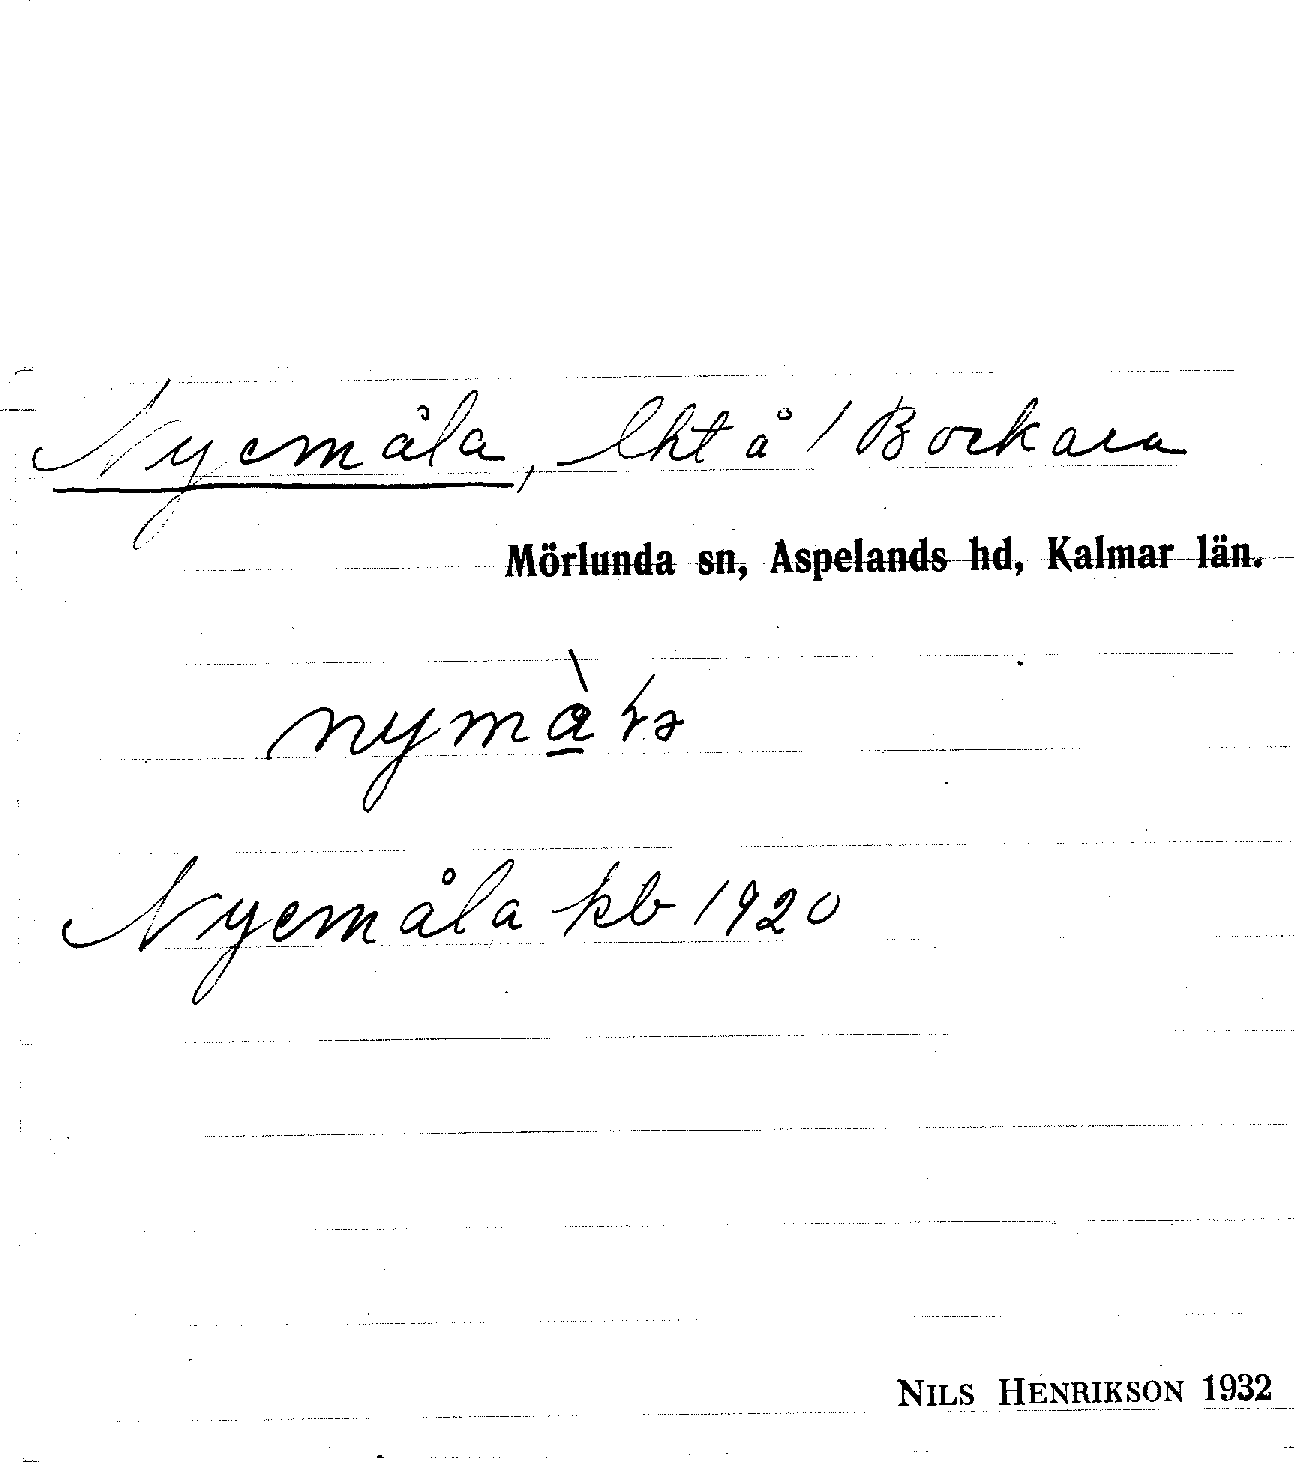 Nyemåla, lht å 1 Bockara
Mörlunda sn, Aspelands hd, Kalmar län.
Nyemåla kb 1920
NILS HENRIKSON 1932